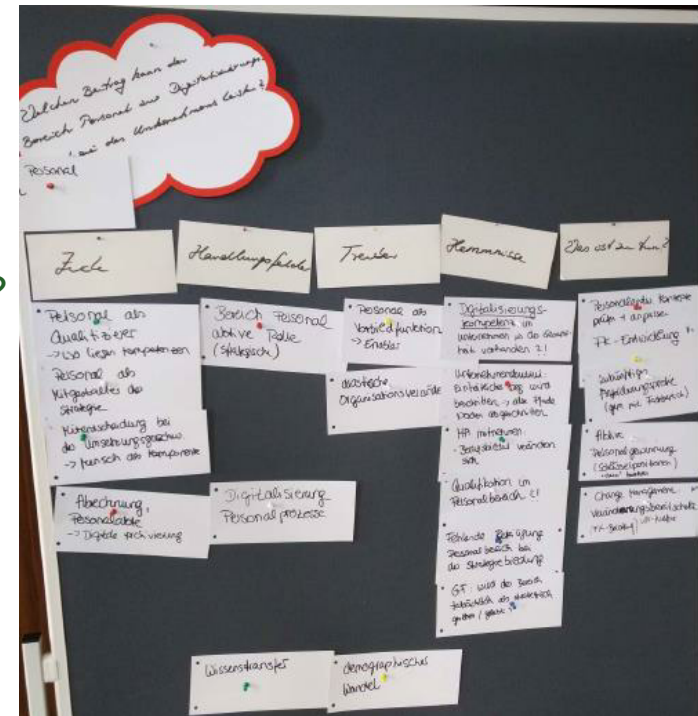 Welchen Beitrag kann der
Bereich Personal zur Digitalisierungs-
des Unternehmens leisten?
Personal
Ziele
Handlungsfelder
Treiber
Hemmnisse
Was ist zu tun?
Personal als
Qualifizierer
-> wo liegen Kompetenzen
Personal als
Mitgestalter der
Strategie
Mitentscheidung bei
der Umsetzungsgeschw.
-> Mensch als Komponente
Abrechnung,
Personalakte
-> Digitale Archivierung
Bereich Personal
aktive Rolle
(strategisch)
Digitalisierung
Personalprozesse
Wissenstransfer
Personal als
Vorbildfunktion
-> Enabler
drastische
Organisationsveränd
demographischer
Wandel
Digitalisierungs-
kompetenz im
Unternehmen in der
vorhanden ?!
wird
beschritten -> alte Pfade
werden abgeschnitten
MA mitnehmen
- Berufsbilder verändern
sich
Qualifikation im
Personalbereich ?!
Fehlende Befähigung
Personalbereich bei
der Strategiebildung
GF: wird der Bereich
tatsächlich als strategisch
gesehen /
Konzepte
prüfen + anpassen
FK-Entwicklung
Zukünftige
Aktive
Personalgewinnung
(Schlüsselpositionen)
Change Management
Veränderungsbereitschaft